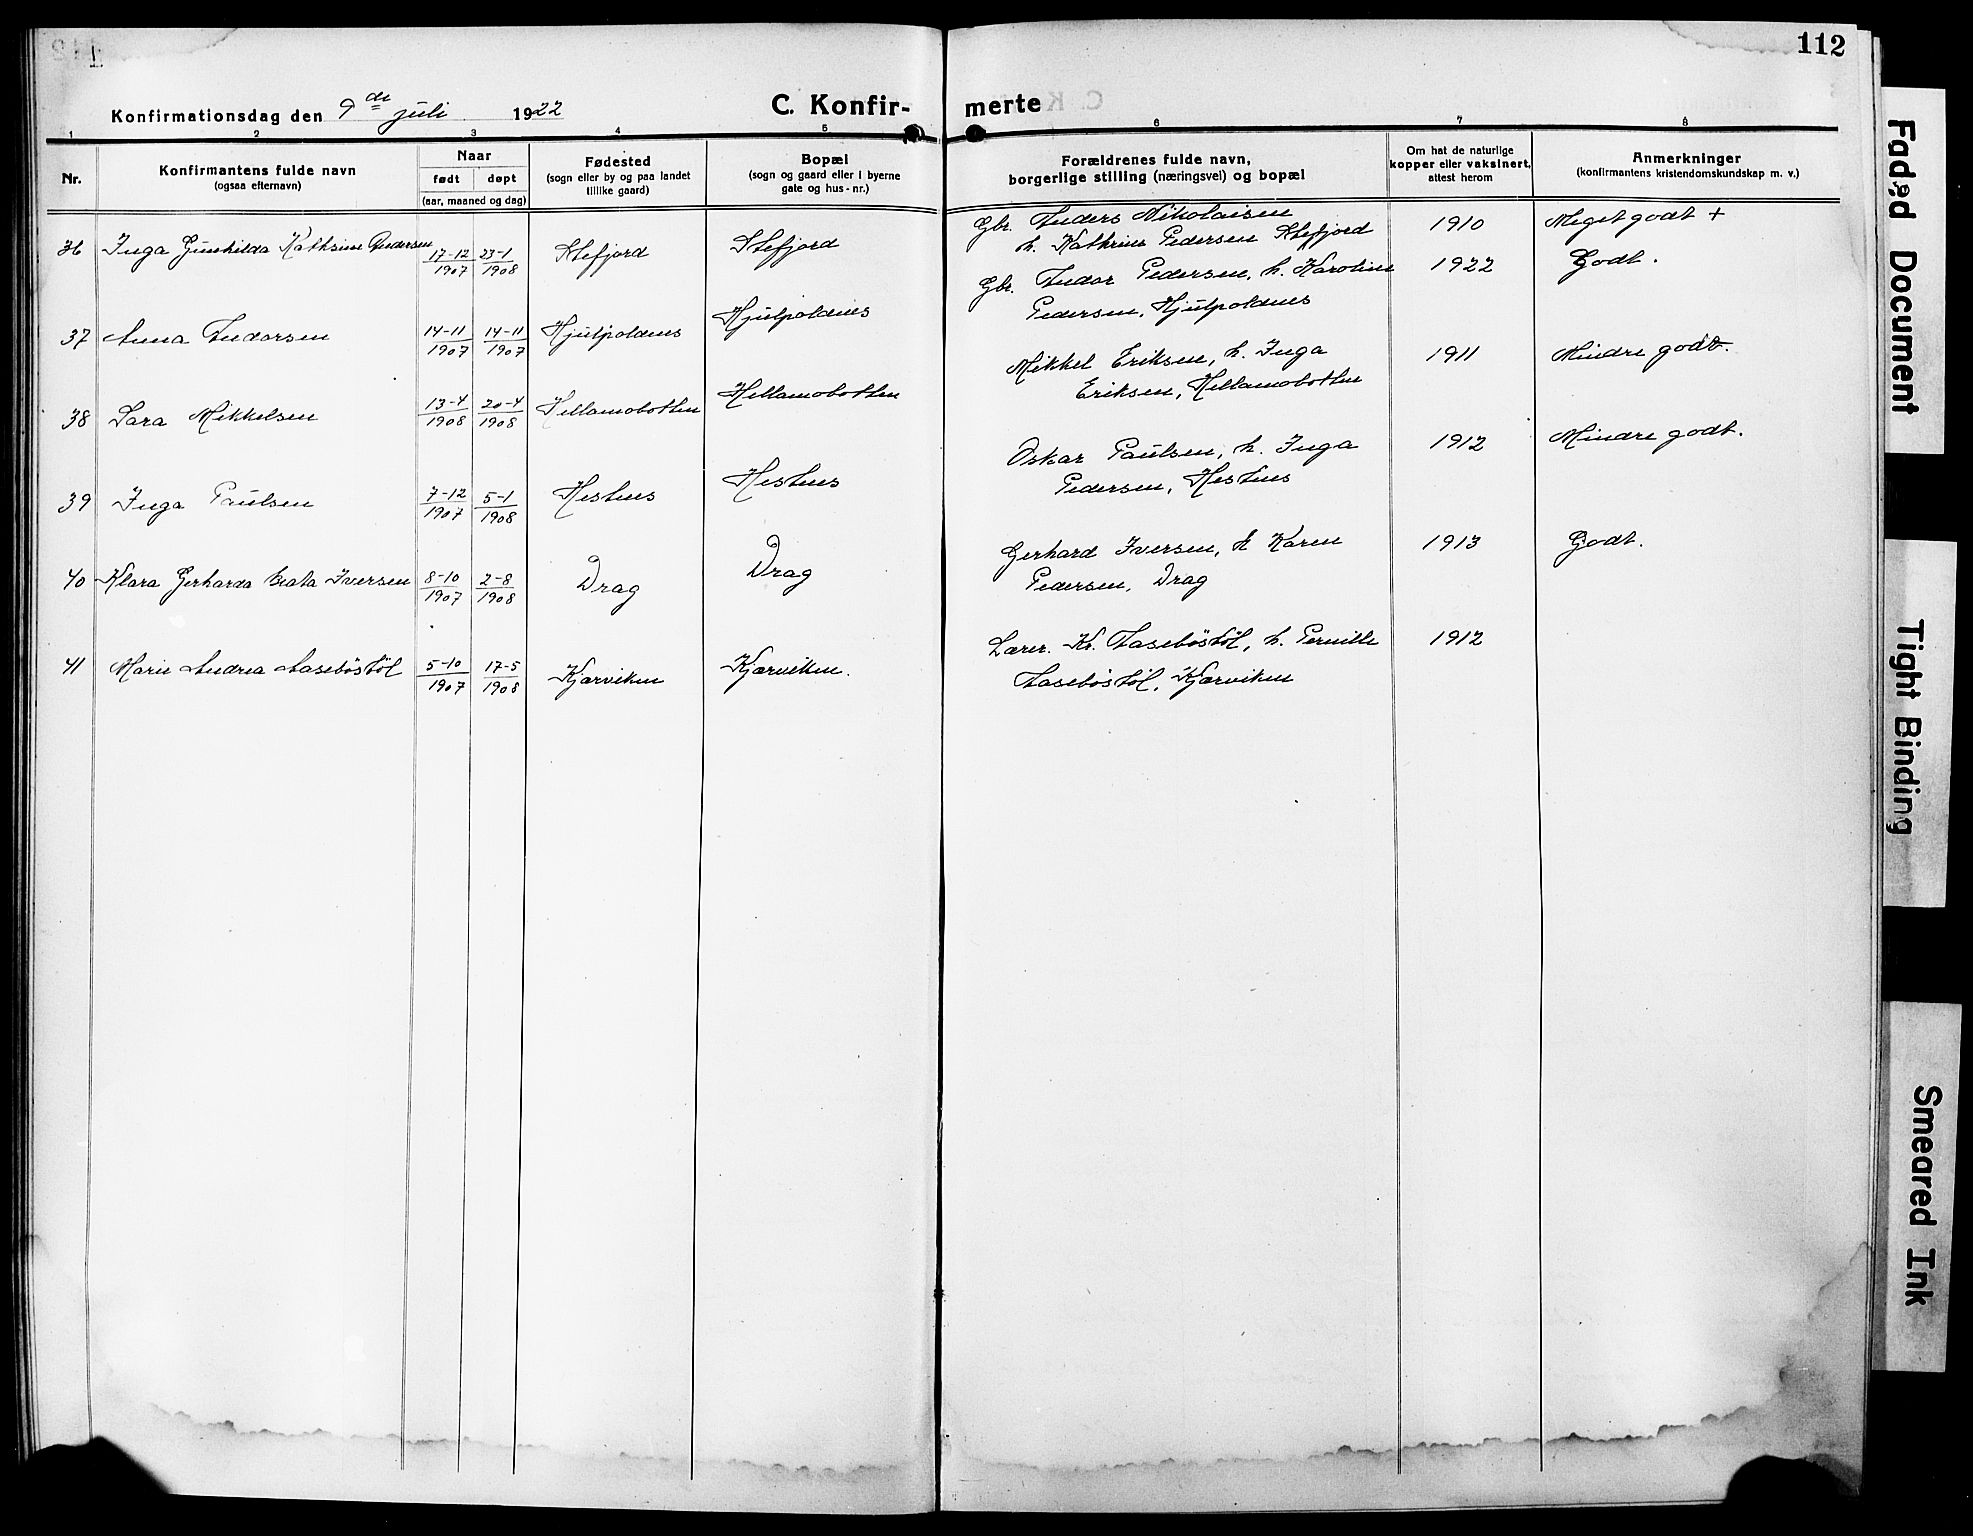 112
Konfirmationsdag den 9de juli 1922
C. Konfir-
merte
1 2 3 4 5 6 7 8
Nr.
Konfirmantens fulde navn
(ogsaa efternavn)
Naar
født døpt
(aar, maaned og dag)
Fødested
(sogn eller by og paa landet
tillike gaard)
Bopæl
(sogn og gaard eller i byerne
gate og hus-nr.)
Forældrenes fulde navn,
borgerlige stilling (næringsvei) og bopæl
Om hat de naturlige
kopper eller vaksinert,
attest herom
Anmerkninger
(konfirmantens kristendomskundskap m. v.)
36 Inga Gunhilda Kathrine Andersen 17-12 1907 23-1 1908 Stefjord Stefjord
Gbr. Anders Nikolaisen 1910 Meget godt +
h. Kathrine Pedersen Stefjord
37 Anna Andorsen 14-11 1907 14-11 1907 Hjulpoldnes Hjulpoldnes
Gbr. Andor Pedersen, h. Karoline 1922 Godt.
Pedersen, Hjulpoldnes
38 Sara Mikkelsen 13-4 1908 20-4 1908 Hellamobotten Hellamobotten
Mikkel Eriksen, h. Inga 1911 Mindre godt.
Eriksen, Hellamobotten
39 Inga Paulsen 7-12 1907 5-1 1908 Hestnes Hestnes
Oskar Paulsen, h. Inga 1912 Mindre godt.
Pedersen, Hestnes
40 Klara Gerharda Beata Iversen 8-10 1907 2-8 1908 Drag Drag
Gerhard Iversen, h Karen 1913 Godt.
Pedersen, Drag
41 Marie Andrea Aasebøstøl 5-10 1907 17-5 1908 Kjærviken Kjærviken.
Lærer Kr. Aasebøstøl, h. Pernille 1912
Aasebøstøl, Kjærviken
Faded Document
Tight Binding
Smeared Ink